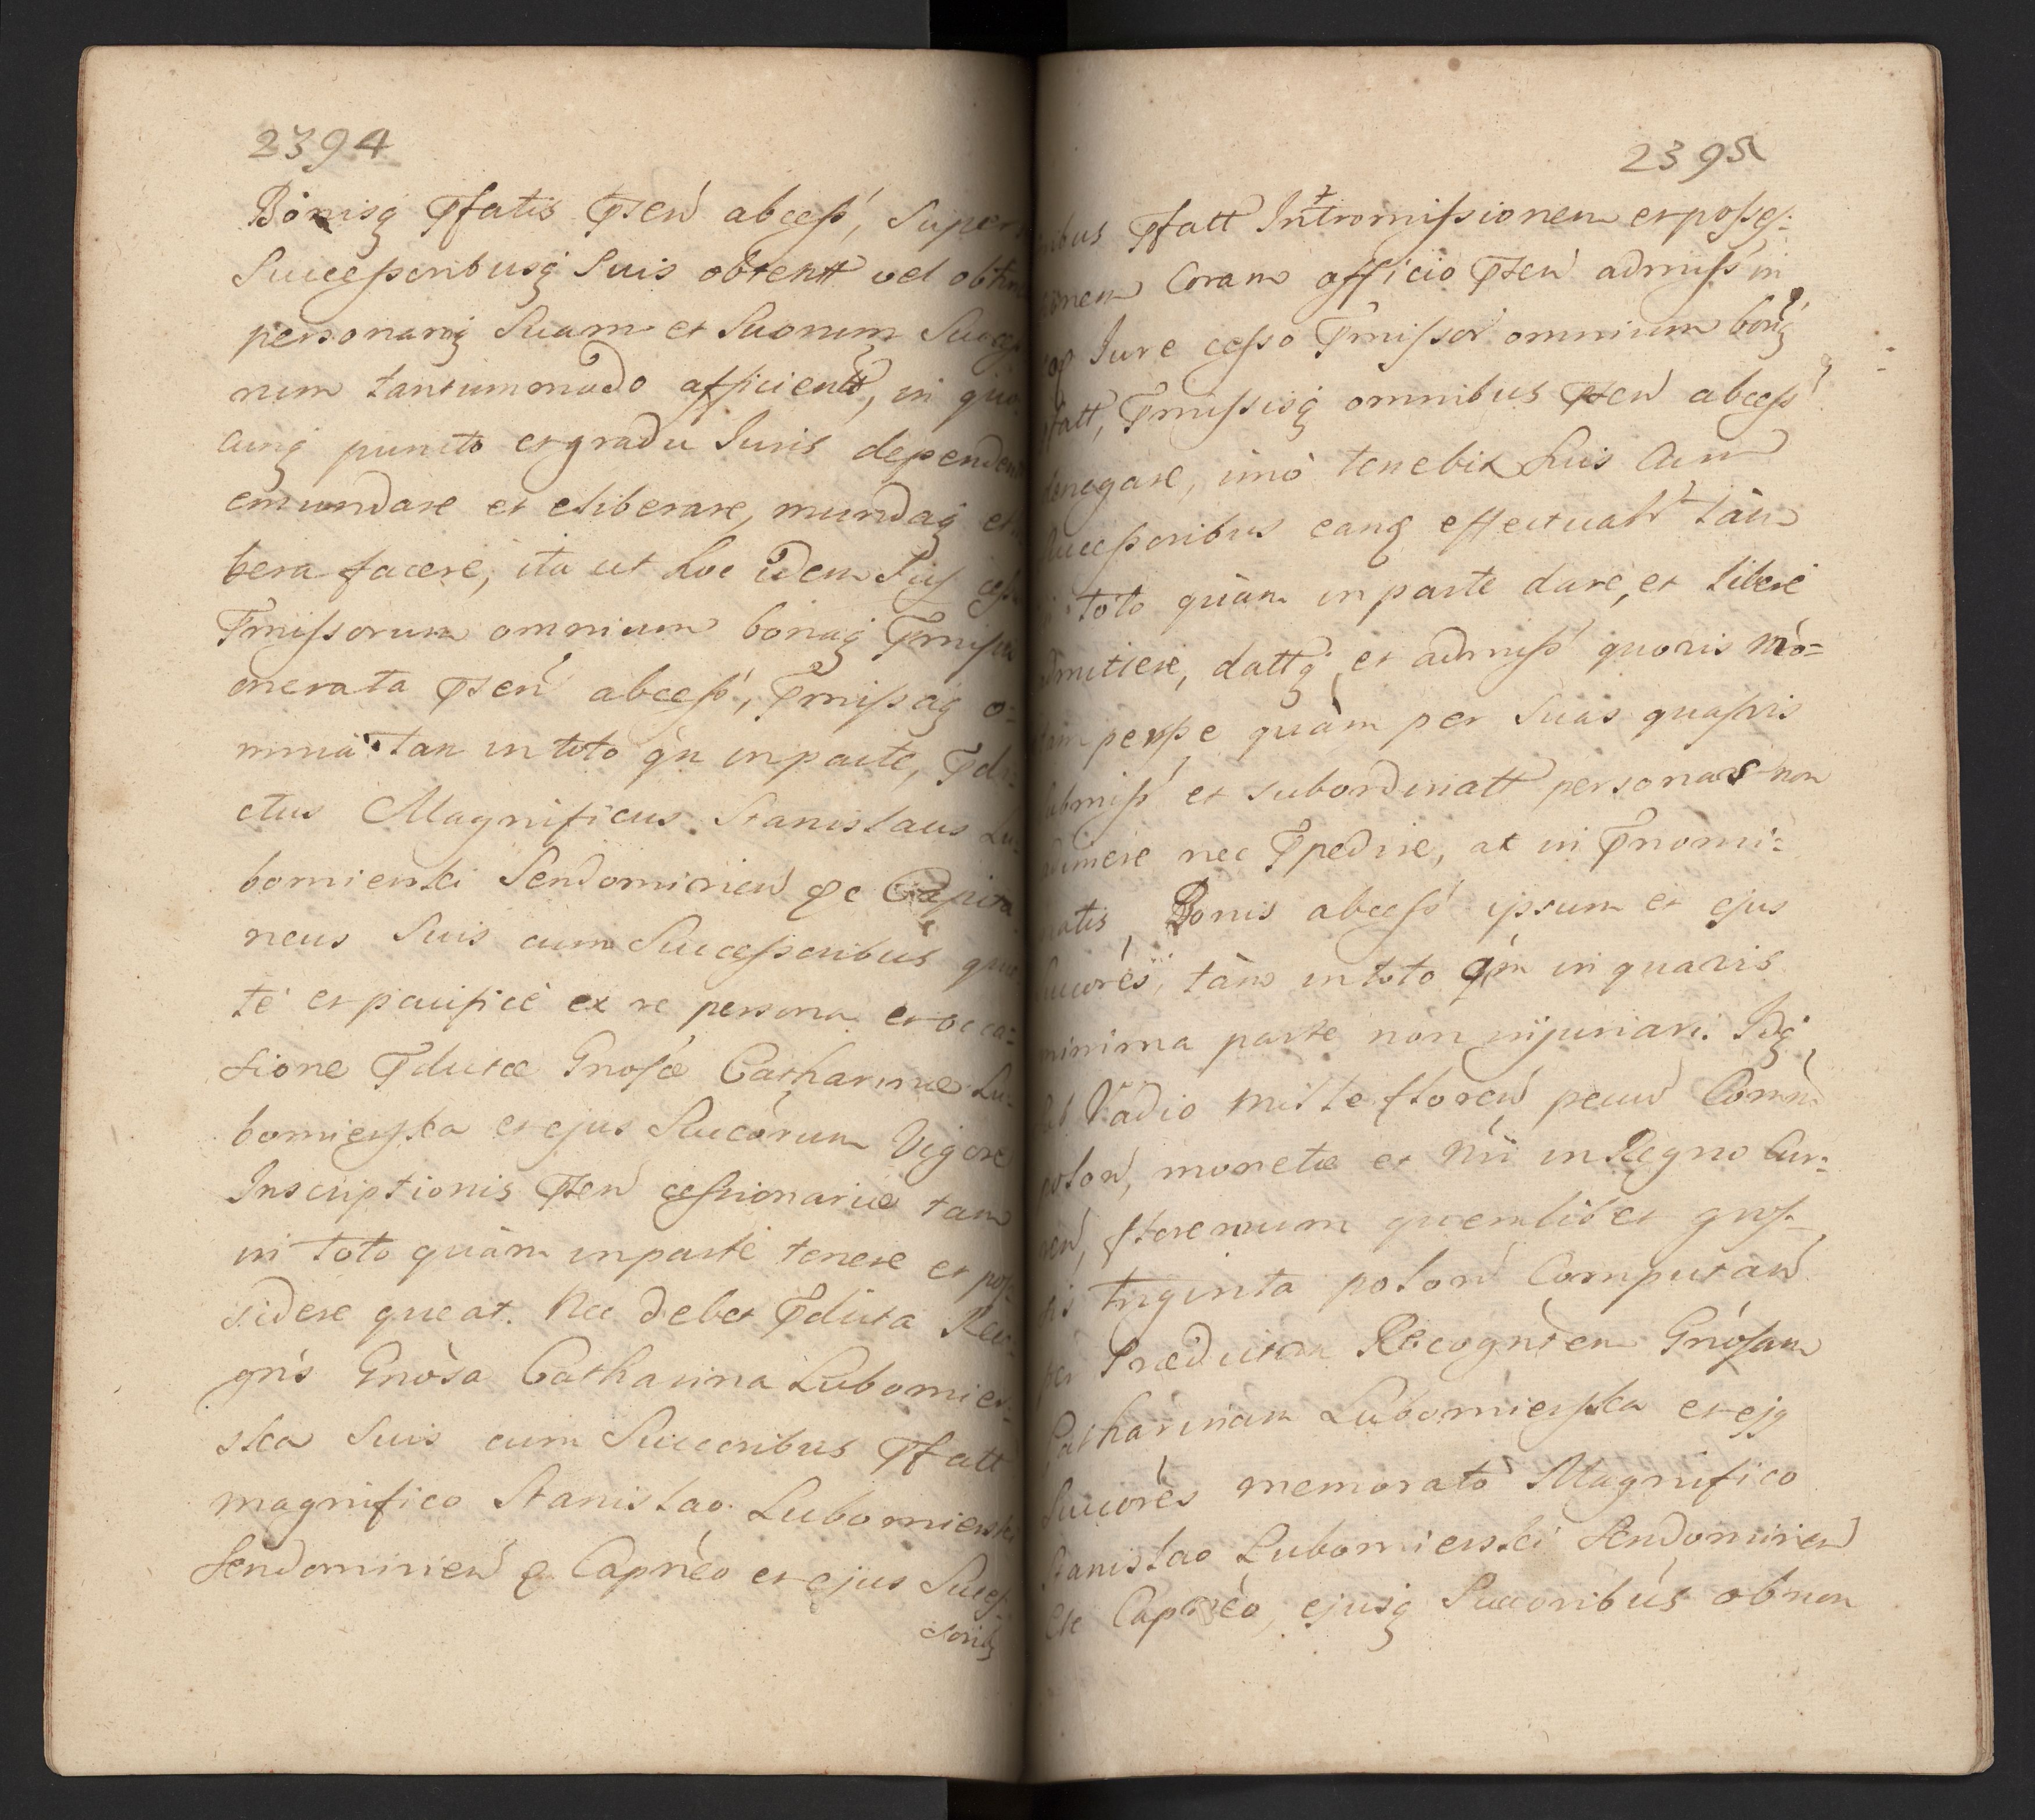 2394
Bonisq Pfatis Psen abcess, Super
Successoribusq Suis obtentt vel obtin
personamq Suam et Suorum Succes
rum tantummodo afficientt, in quo
cunq puncto et gradu Juris dependen
emundare et eliberare, mundaq et
bera facere, ita ut hoc idem Jus cess
Pmissorum omnium bonaq Pmissa
onerata Psen abcess, Pmissaq o=
mnia tam in toto qm in parte, Pdi=
ctus Magnificus Stanislaus Lu=
bomierski Sendomirien &c Capita
neus Suis cum Successoribus quie
te et pacifice ex re persona et occa=
sione Pdictæ Gnosæ Catharinæ Lu=
bomierska et ejus Succorum Vigore
Inscriptionis Psen cessionariæ tam
in toto quàm in parte tenere et pos
sidere queat. Nec debet Pdicta Reco
gns Gnosa Catharina Lubomier=
ska Suis cum Succoribus Pfatt
magnifico Stanislao Lubomierski
Sendomirien & Capneo et ejus Succes
soribq
2395
ibus Pfatt Intromissionem et posses=
ionem Coram officio Psen admiss in
Jure cesso Pmissor omnium bonq
fatt, Pmissisq omnibus Psen abcess
denegare, imò tenebit Suis Cum
Successoribus eamq effectualr tàm
toto quàm in parte dare, et liberè
dmittere, dattq et admiss quovis mo=
per se quàm per Suas quasvis
ubmiss et subordinatt personas non
adimere nec Ppedire, at in Pnomi=
natis Bonis abcess ipsum et ejus
Succores, tàm in toto qm in quavis
minima parte non injuriari. Idq
sub Vadio mille floren pecun Comm
polon, monetæ et nri in Regno Cur=
ren, florenum quemlibet gros=
sis triginta polon Computan
per Prædictam Recognscem Gnosam
Catharinam Lubomierska et ejq
Succores memorato Magnifico
Stanislao Lubomierski Sendomirien
Etc Capneo, ejusq Succoribus ob non